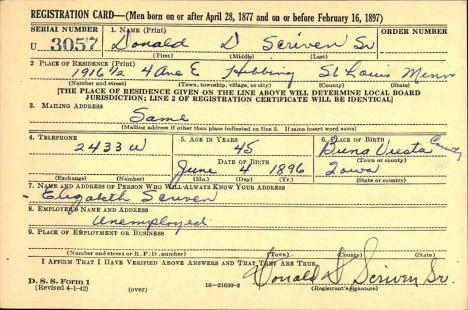 REGISTRATION CARD—(Men born on or after April 28, 1877 and on or before February 16, 1897)
SERIAL NUMBER 1. NAME (Print) ORDER NUMBER
U 3057 Donald D Scriven Sr
(First) (Middle) (Last)
2. PLACE OF RESIDENCE (Print)
1916 1/2 4 Ave E Hibbing St Louis Minn
(Number and street) (Town, township, village, or city) (County) (State)
[THE PLACE OF RESIDENCE GIVEN ON THE LINE ABOVE WILL DETERMINE LOCAL BOARD
JURISDICTION; LINE 2 OF REGISTRATION CERTIFICATE WILL BE IDENTICAL]
3. MAILING ADDRESS
Same
[Mailing address if other than place indicated on line 2. If same insert word same]
4. TELEPHONE 5. AGE IN YEARS 6. PLACE OF BIRTH
2433 W 45 Buna Viesta County
DATE OF BIRTH (Town or county)
June 4 1896 Iowa
(Exchange) (Number) (Mo.) (Day) (Yr.) (State or country)
7. NAME AND ADDRESS OF PERSON WHO WILL ALWAYS KNOW YOUR ADDRESS
Elizabeth Scriven
8. EMPLOYER'S NAME AND ADDRESS
Unemployed
9. PLACE OF EMPLOYMENT OR BUSINESS
(Number and street or R. F. D. number) (Town) (County) (State)
I AFFIRM THAT I HAVE VERIFIED ABOVE ANSWERS AND THAT THEY ARE TRUE.
D. S. S. Form 1 Donald D Scriven Sr.
(Revised 4-1-42) (over) 16—21630-2 (Registrant's signature)